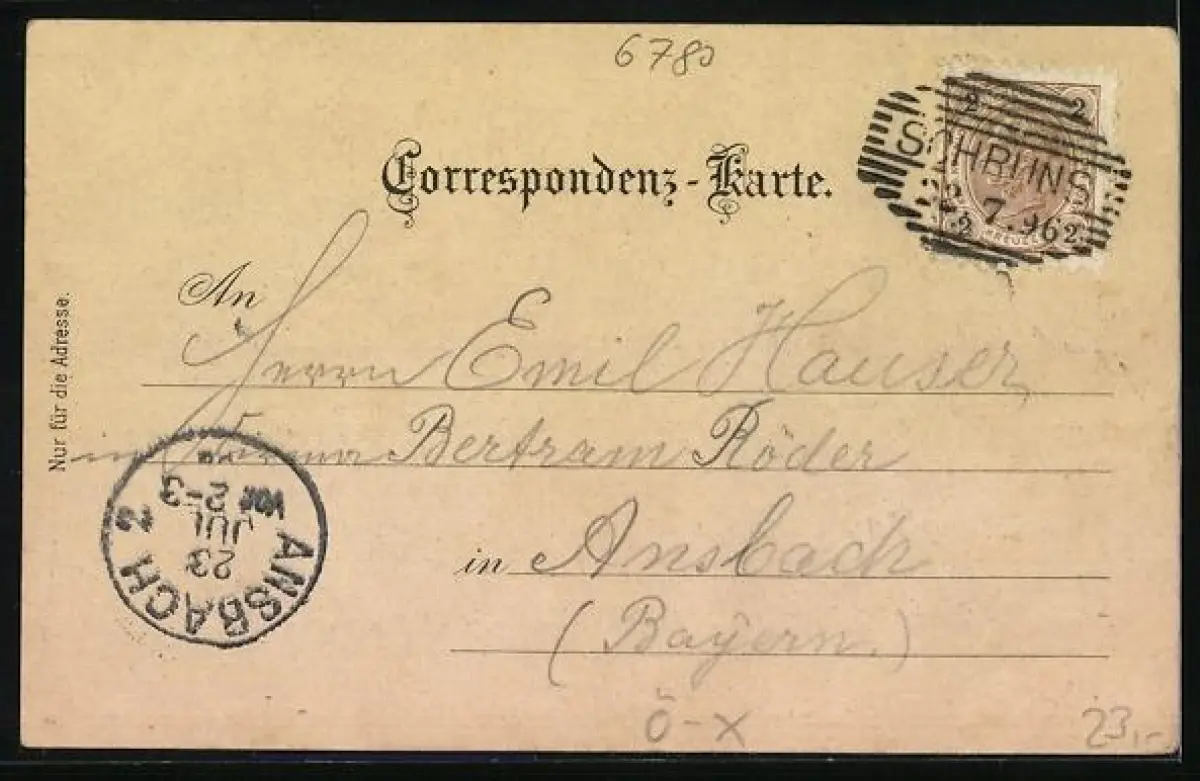 6780
Correspondenz-Karte.
2 2
SCHRUNS
22 7.96
2 KREUZER 2
An
Herrn Emil Hauser
Nur für die Adresse.
Firma Bertram Röder
ANSBACH 2
23
JUL
2-3
in Ansbach
(Bayern.)
Ö-X
23,-